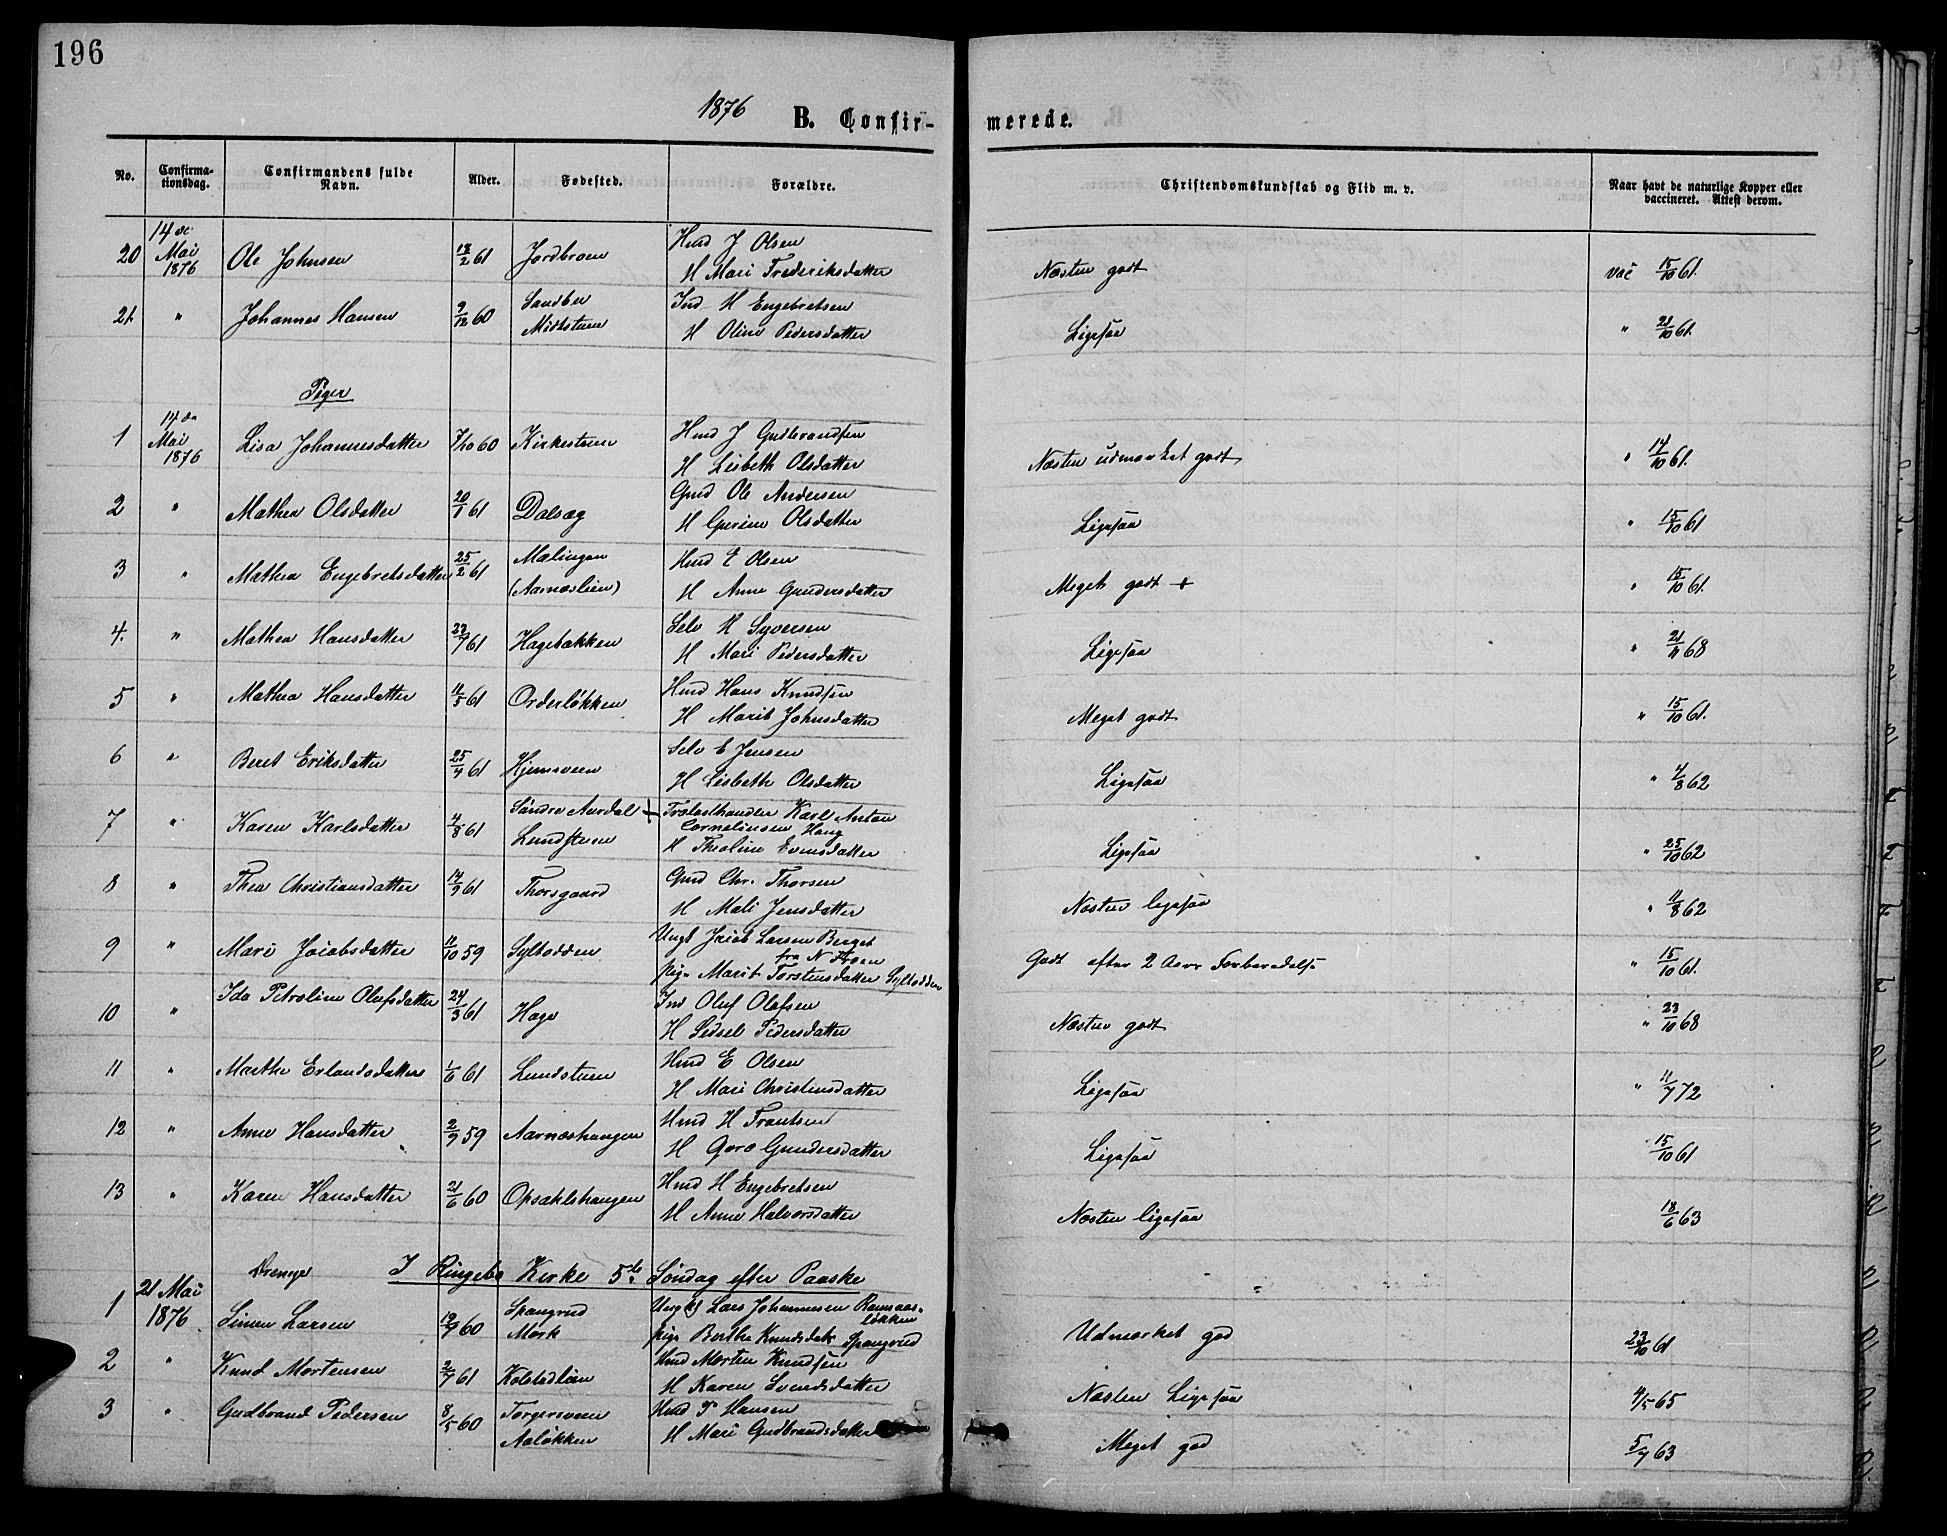 196
1876
B. Confir-
merede.
No.
Confirma-
tionsdag.
Confirmandens fulde
Navn.
Alder.
Fødested.
Forældre.
Christendomskundskab og Flid m. v.
Naar havt de naturlige Kopper eller
vaccineret. Attest derom.
20 14de Mai 1876 Ole Johnsen 61 Jordbroen Hmd J Olsen H Mari Frederiksdatter Næsten godt vac 15/10 61.
21 " Johannes Hansen 9/12 60 Sandbu Midtstuen Ind H Engebretsen H Oline Pedersdatter Ligesaa " 21/10 61.
Piger
1 14de Mai 1876 Lisa Johannesdatter 7/10 60 Kirkestuen Hmd J Gudbrandsen H Lisbeth Olsdatter Næsten udmærket godt " 14/10 61.
2 " Mathea Olsdatter 20/1 61 Dalsæg Gmd Ole Andersen H Olsdatter Ligesaa " 15/10 61
3 " Mathea Engebretsdatter 25/2 61 Mælingen (Aarnæslien) Hmd E Olsen H Anne Gundersdatter Meget godt + " 15/10 61.
4. " Mathea Hansdatter 61 Hagebakken Selv H Syversen H Mari Pedersdatter Ligesaa " 21/11 68
5 " Mathea Hansdatter 11/5 61 Orderløkken Hmd Hans Knudsen H Marit Johnsdatter Meget godt " 15/10 61.
6 " Beret Eriksdatter 25/4 61 Hjemsveen Selv E Jensen H Lisbeth Olsdatter Ligesaa " 4/8 62
7 " Karen Karlsdatter 4/8 61 Søndre Aurdal + Lundstuen Trælasthandler Karl Anton Corneliusen Haug H Theoline Evensdatter Ligesaa " 25/10 62
8 " Thea Christiansdatter 14/9 61 Thorsgaard Gmd Chr. Thorsen H Mali Jensdatter Næsten ligesaa " 11/8 62
9 " Mari Jacobsdatter 11/10 59 Syltodden Ungk Jacob Larsen Berget fra N Froen pige Marit Torstensdatter Syltodden Godt efter 2 Aars Forberedelse " 15/10 61.
10 " Ida Petroline Olufsdatter 24/3 61 Hage Ind Oluf Olafsen H Sidsel Pedersdatter Næsten godt " 23/10 68
11 " Marthe Erlandsdatter 1/6 61 Lundstuen Hmd E Olsen H Mari Christensdatter Ligesaa " 11/7 72
12 " Anne Hansdatter 2/9 59 Aarnæshaugen Hmd H Frantsen H Goro Gundersdatter Ligesaa 15/10 61
13 " Karen Hansdatter 21/6 60 Opsahlshaugen Hmd H Engebretsen H Anne Halvorsdatter Næsten ligesaa 18/6 63
Drenge I Ringebo Kirke 5te Søndag efter Paaske
1 21 Mai 1876 Simen Larsen 60 Spangrud Mork Ungk Lars Johannesen Ramsaasløkken pige Berthe Knudsdatr Spangrud Udmærket god 23/10 61
2 " Knud Mortensen 2/7 61 Kolstadlien Hmd Morten Knudsen H Karen Svendsdatter Næsten Ligesaa 4/5 65
3 " Gudbrand Pedersen 8/5 60 Torgersveen Aaløkken Hmd P Hansen H Mari Gudbrandsdatter Meget god 5/7 63